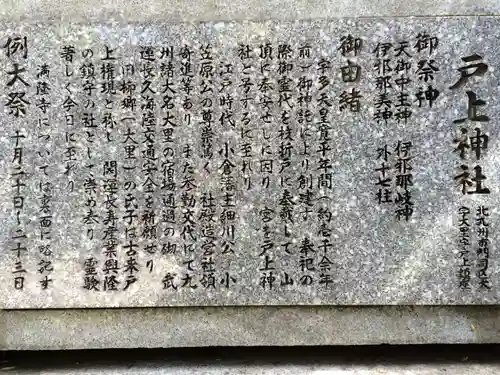 戸上神社
北九州市門司区大
字大里字戸ノ上鎮座
御祭神
天御中主神　伊邪那岐神
伊邪那美神　外十七柱
御由緒
宇多天皇寛平年間(約壱千余年
前)御神託により創建す　奉祀の
際御霊代を枝折戸に奉戴して　山
頂に奉安せしに因り　宮を戸上神
社と号するに至れり
江戸時代　小倉藩主細川公　小
笠原公の尊崇篤く　社殿造営社領
寄進等あり　また参勤交代にて九
州諸大名大里の宿場通過の砌　武
運長久海陸交通安全を祈願せり
旧柳郷(大里)の氏子は古来戸
上権現と称し　開運長寿産業興隆
の鎮守の社として崇め参り　霊験
著しく今日に至れり
満隆寺については裏面に略記す
例大祭　十月二十日〜二十三日